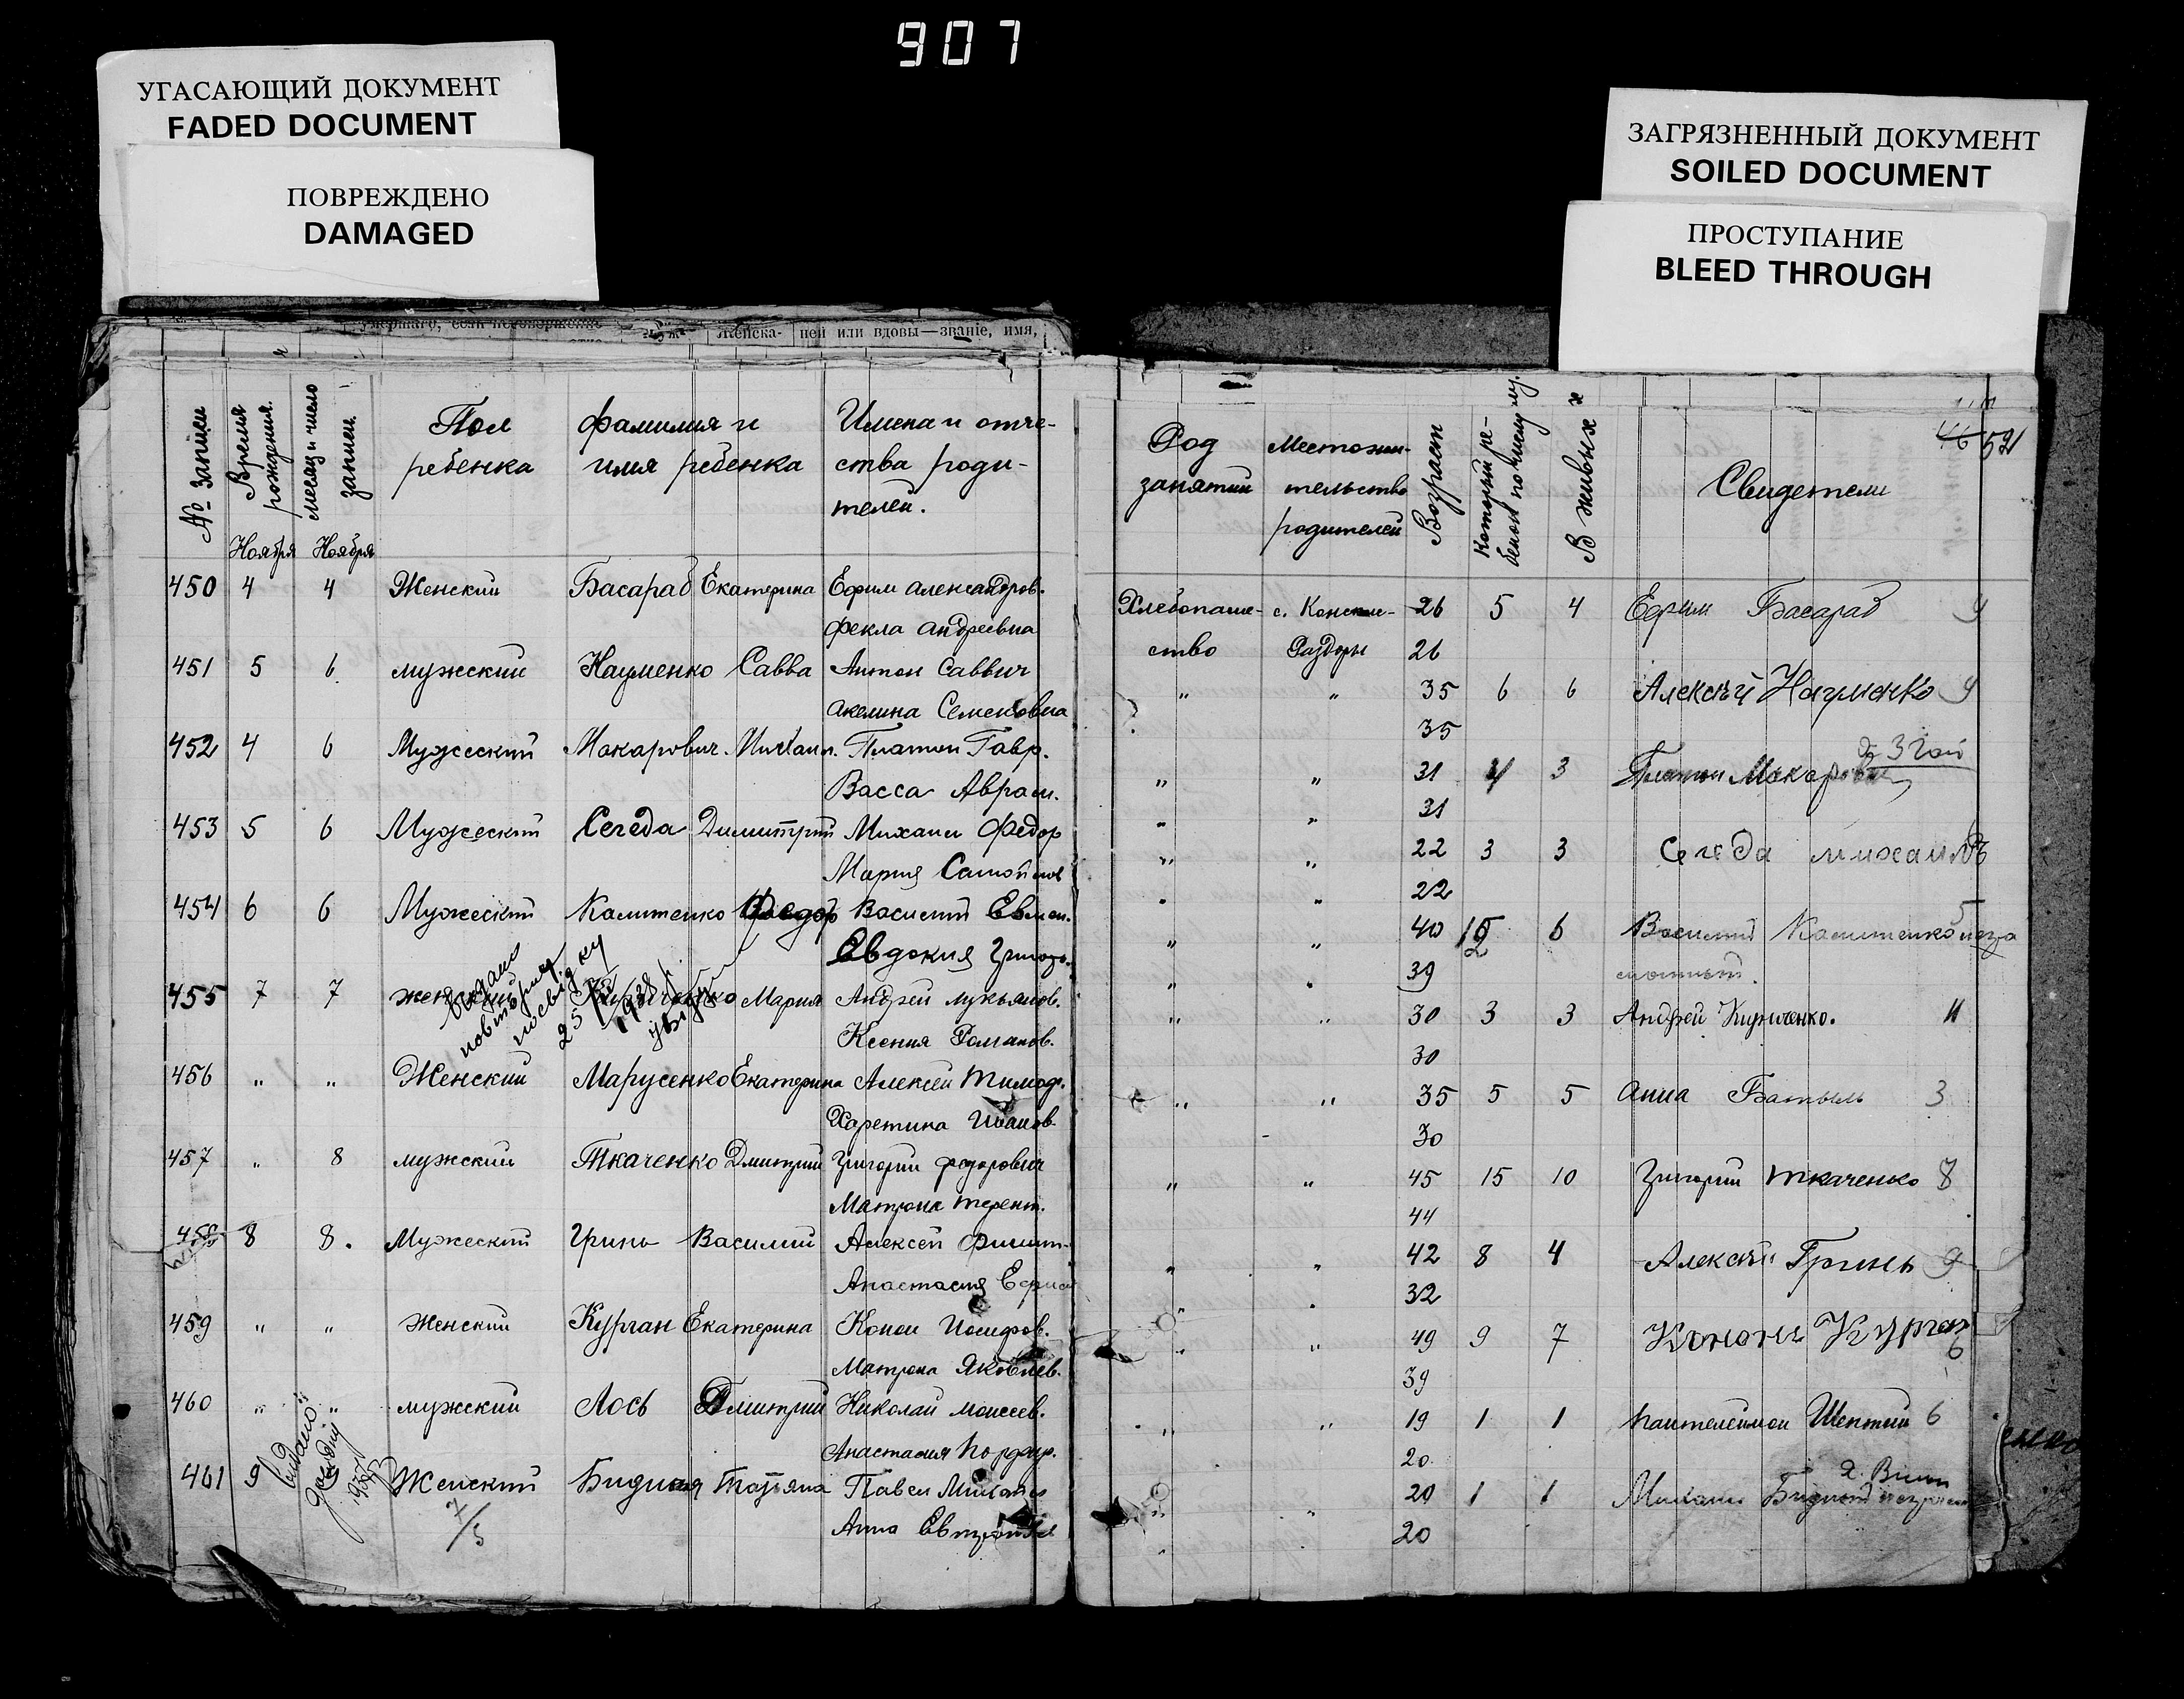 907
УГАСАЮЩИЙ ДОКУМЕНТ
FADED DOCUMENT
ПОВРЕЖДЕНО
DAMAGED
ЗАГРЯЗНЕННЫЙ ДОКУМЕНТ
SOILED DOCUMENT
ПРОСТУПАНИЕ
BLEED THROUGH
ней или вдовы—званіе, имя,
№ записи
Время рождения.
месяц и число записи.
Пол
ребенка
фамилия и
имя ребенка
Имена и отче-
ства роди-
телей.
Ноября Ноября
450 4 4 Женский Басараб Екатерина Ефим Александров.
Фекла Андреевна
451 5 6 мужский Науменко Савва Антон Саввич
Акелина Семеновна
452 4 6 Мужеский Макарович Михаил. Платон Гавр.
Васса Аврам.
453 5 6 Мужеский Сегеда Димитрий Михаил Федор
Мария Самойлов
454 6 6 Мужеский Калитенко Федор Василий Евмен.
Евдокия Григор.
видано
повторну
посвідку
25
1938 р.
455 7 7 женский Кириченко Мария Андрей Лукьянов.
Ксения Романов.
456 " " Женский Марусенко Екатерина Алексей Тимоф.
Харетина Иванов.
457 " 8 мужский Ткаченко Дмитрий Григорий Федорович
Матрона Терент.
458 8 8. Мужеский Гринь Василий Алексей Филип-
Анастасия Ефим
459 " " Женский Курган Екатерина Конон Иосифов.
Матрона Яковлев.
460 " " мужский Лось Дмитрий Николай Моисеев.
Анастасия Порфир.
Видано
1937
461 9 Женский Бидная Татьяна Павел Михайл
Анна Евтропиев
7/5
46 52
Род
занятий
Местожи-
тельство
родителей
Возраст
Который ре-
бенок по числу
В живых
Свидетели
Хлебопаше- с. Конские- 26 5 4 Ефим Басараб 9
ство Раздоры 26
" " 35 6 6 Алексей Науменко 9
35
" " 31 4 3 Платон Макарович
" " 31
" " 22 3 3 Сегеда михаилъ
" " 22
" " 40 12 6 Василий Калитенко
" " 39
" " 30 3 3 Андрей Кириченко. 11
30
" " 35 5 5 Анна Батыль 3
30
" " 45 15 10 Григорий Ткаченко 8
44
" " 42 8 4 Алексей Гринь 9
" " 32
" " 49 9 7 Кононъ Курган 6
39
" " 19 1 1 Пантелеймон Шептий 6
20
" " 20 1 1 Михаил Бидный
" " 20